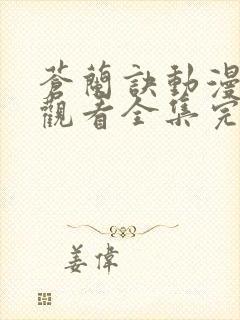 蒼蘭訣動漫
觀看全集完
姜偉